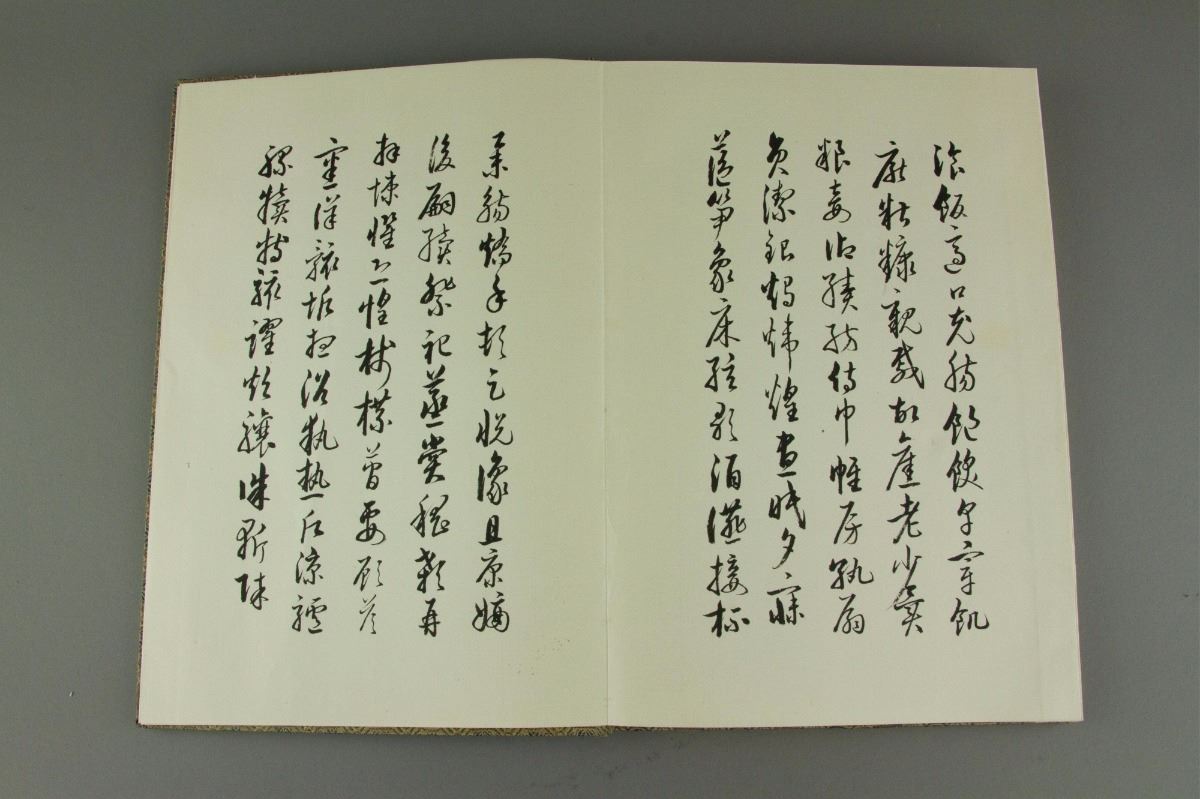 飡飯適口充腸飽飫烹宰飢
厭糟糠親戚故舊老少異
糧妾御績紡侍巾帷房紈扇
員潔銀燭煒煌晝眠夕寐
藍笋象床弦歌酒讌接杯
舉觴矯手頓足悅豫且康嫡
後嗣續祭祀蒸嘗稽顙再
拜悚懼恐惶牋牒簡要顧答
審詳骸垢想浴執熱願涼驢
騾犢特駭躍超驤誅斬賊